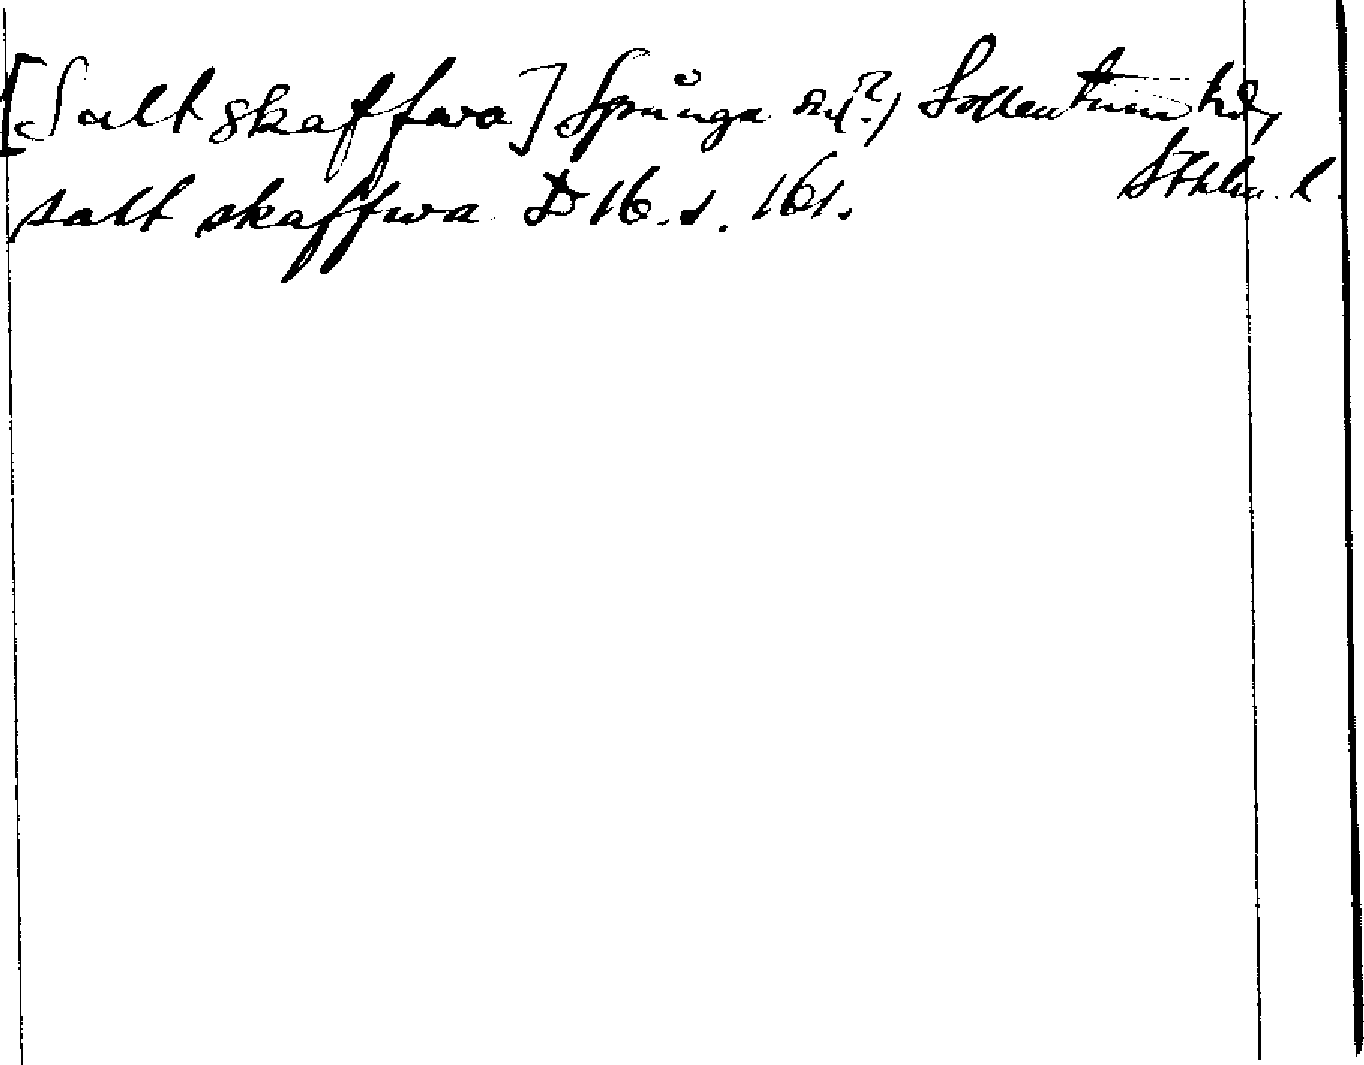 [Saltskaffwa] Spånga sn(?), Sollentuna hd,
Sthlm. l.
salt skaffwa D 16. s. 161.